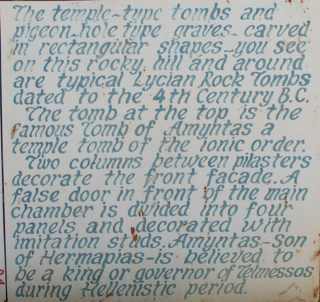 The temple-type tombs and
pigeon-hole type graves-carved
in rectangular shapes-you see
on this rocky hill and around
are typical Lycian Rock Tombs
dated to the 4th Century B.C.
The tomb at the top is the
famous Tomb of Amyntas a
temple tomb of the ionic order.
Two columns between pilasters
decorate the front facade. A
false door in front of the main
chamber is divided into four
panels and decorated with
imitation studs. Amyntas-son
of Hermapias-is believed to
be a king or governor of Telmessos
during Hellenistic period.